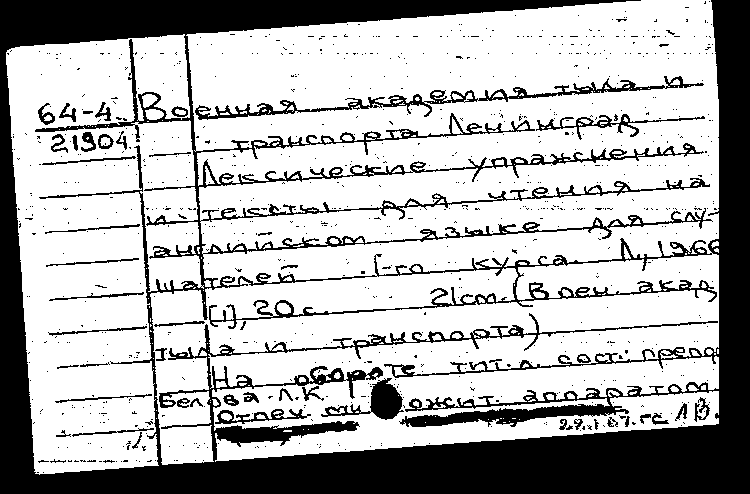 64-4 Военная академия тыла и
21904 транспорта Ленинград
Лексические упражнения
и тексты для чтения на
английском языке для слу-
шателей I-го курса. Л., 1966
[1], 20 с. 21 см. (Воен. акад.
тыла и транспорта).
На обороте тит. л. сост.: препод
Белова Л.К.
Отпеч. мн ожит. аппаратом